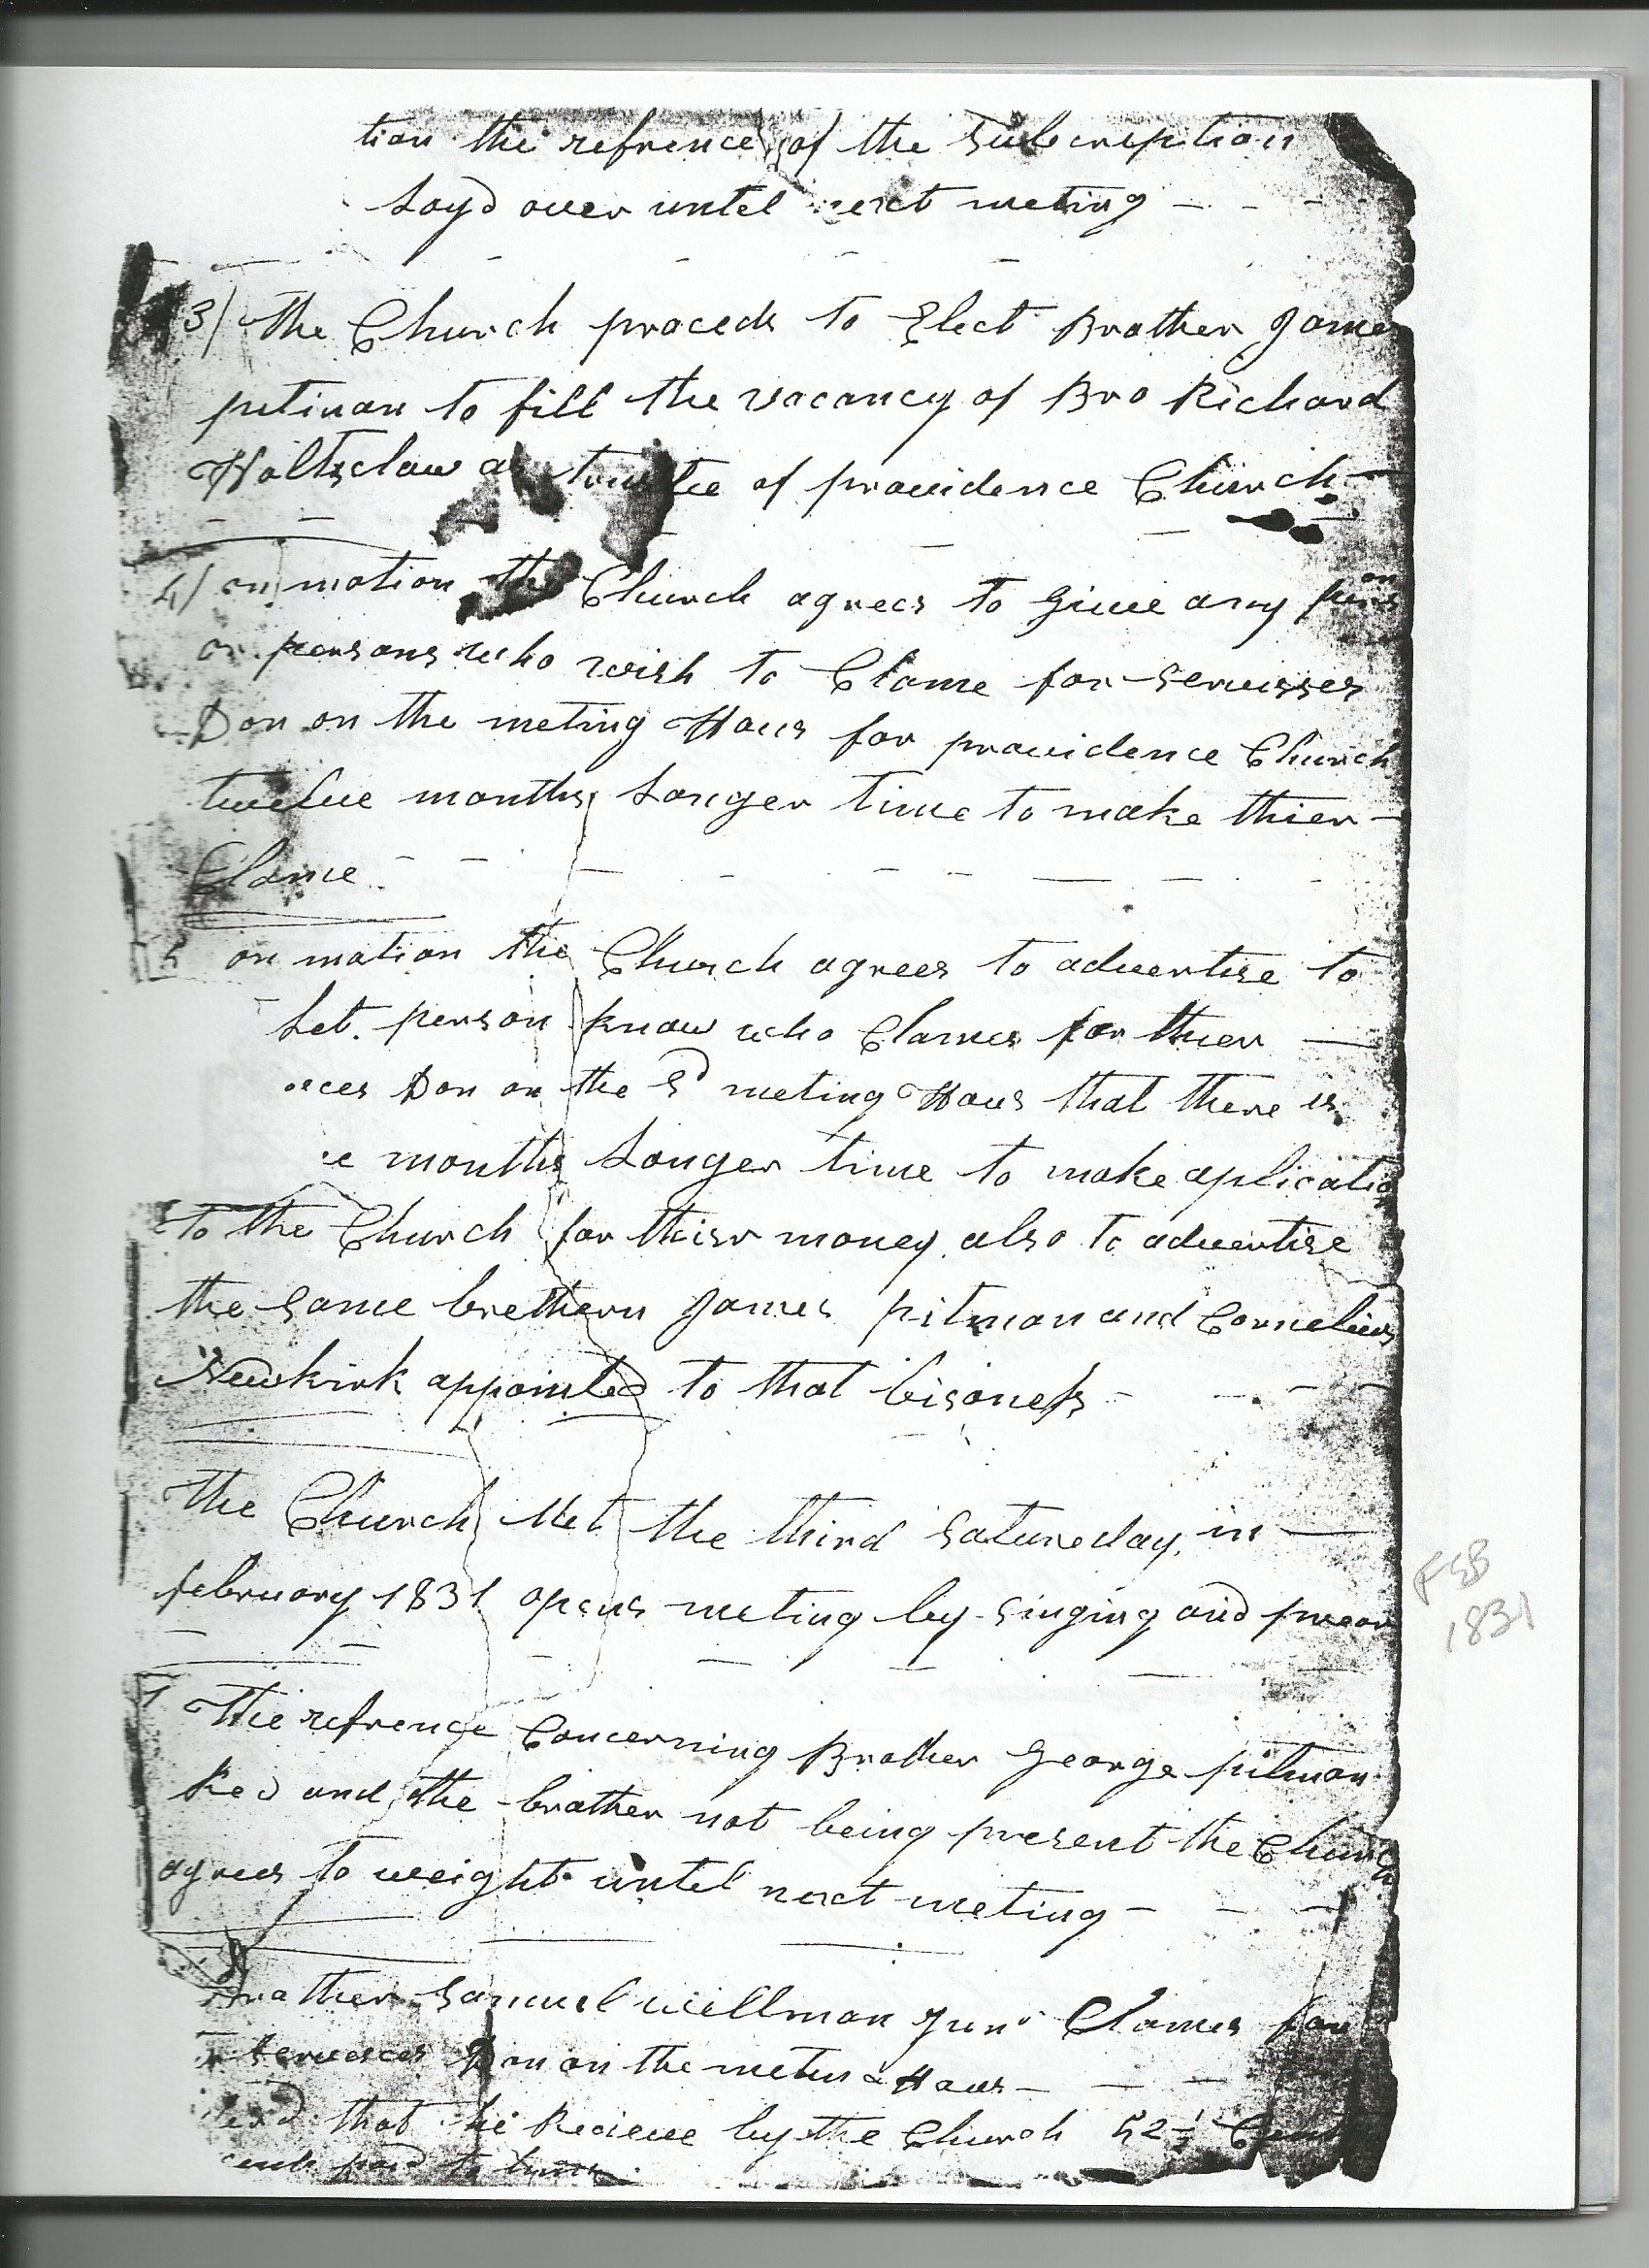 tion the refrence of the Subcreption
Layd over untel next meting
3) the Church proceds to Elect Brother James
pitman to fill the vacancy of Bro Richard
Holtsclaw as trustee of providence Church
4) on motion the Church agrees to give any
or persons who wish to Clame for servisses
Don on the meting Hous for providence Church
twelve months Longer time to make thier
Clame
5 on motion the Church agrees to advertise to
Let person know who Clames for thier
Don on the Sd meting Hous that there is
months Longer time to make aplicatio
to the Church for thier money also to advertise
the same brethern James pitman and Cornelius
Newkirk appointed to that bisoness
The Church Met the third Satureday in
february 1831 opens meting by singing and prear
FEB
1831
1 The refrence Concerning Brother George pitman
Red and the brother not being present the Church
agrees to weight untel next meting
Brother Samuel Wellman Junr Clames for
servesces Don on the meting Hous
that he Recieve by the Church 52 1/2 Cents
paid to him